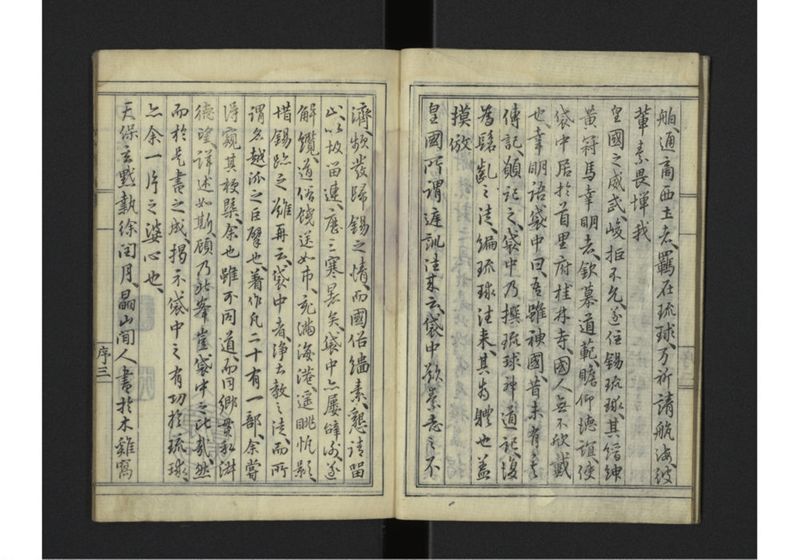 舶通商西土者羈在琉球乃祈請航海彼
輩素畏憚我
皇國之威武峻拒不允遂住錫琉球其僧紳
黃冠馬幸明者欽慕道範瞻仰德誼使
袋中居於首里府桂林寺國人無不欣戴
也幸明語袋中曰吾雖神國昔未有
傳記願記之袋中乃撰琉球神道記復
為
之徒編琉球往來其書體也蓋
摸倣
皇國所謂庭訓往來云袋中
不
濟頻發歸錫之情而國俗緇素懇請留
止以故留連
三寒暑矣袋中
解纜道俗餞送如市充滿海港遙眺帆影
惜錫
之
再云袋中者淨土教之徒而所
謂名越派之巨擘也著作凡二十有一部余嘗
得窺其梗槩余也雖不同道而同鄉貫私淑
德望詳述如斯顧乃
袋中之
然
而於是書之成揭示袋中之有功於琉球
亦余一片之婆心也
天保玄黓執徐閏月
山閒人書於木雞窩
序三